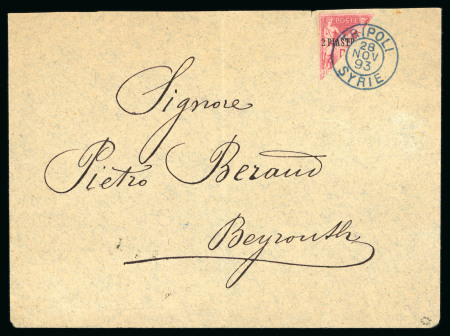 POSTE
2 PIASTR
TRIPOLI
28
NOV
93
SYRIE
Signore
Pietro Beraud
Beyrouth